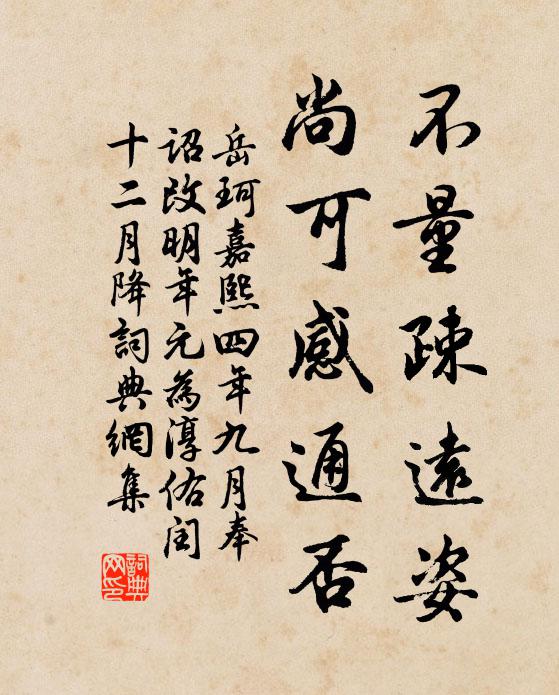 不量疎遠姿
尚可感通否
岳珂嘉熙四年九月奉
詔改明年元為淳佑閏
十二月降詞典網集
詞典網印